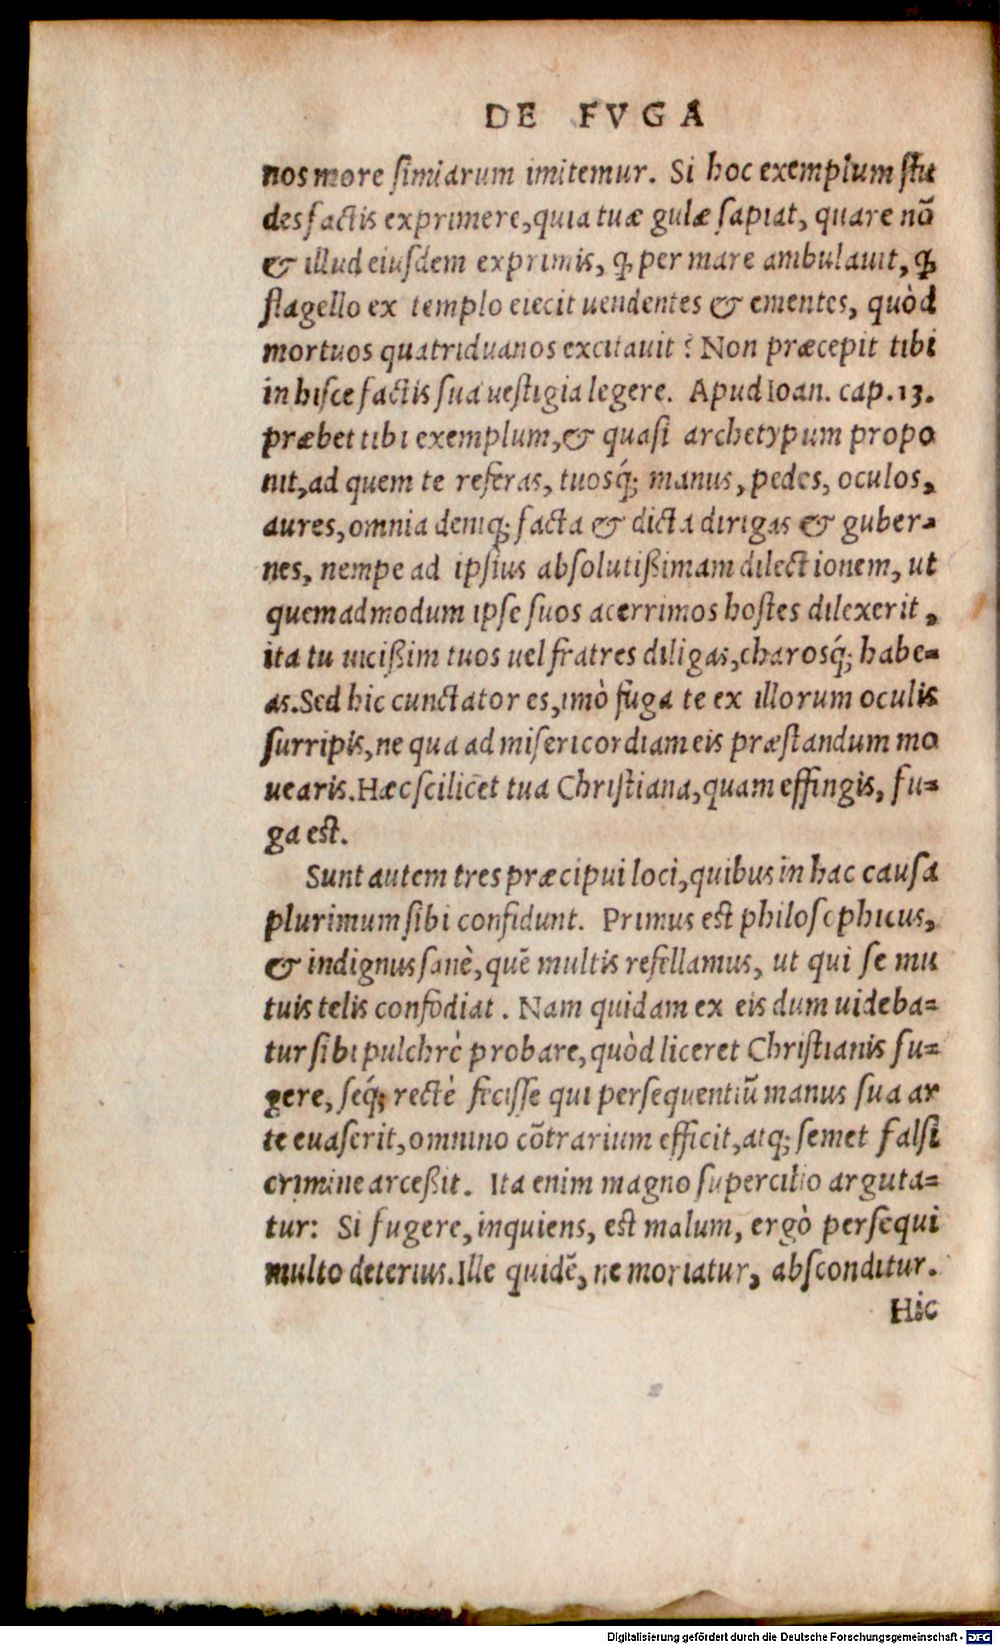 DE FVGA
nos more simiarum imitemur. Si hoc exemplum stu
des factis exprimere, quia tuæ gulæ sapiat, quare nõ
& illud eiusdem exprimis, ꝙ per mare ambulauit, ꝙ
flagello ex templo eiecit uendentes & ementes, quòd
mortuos quatriduanos excitauit? Non præcepit tibi
in hisce factis sua uestigia legere. Apud Ioan. cap. 13.
præbet tibi exemplum, & quasi archetypum propo
nit, ad quem te referas, tuosq́; manus, pedes, oculos,
aures, omnia deniq; facta & dicta dirigas & guber-
nes, nempe ad ipsius absolutißimam dilectionem, ut
quemadmodum ipse suos acerrimos hostes dilexerit,
ita tu uicißim tuos uel fratres diligas, charosq́; habe-
as. Sed hic cunctator es, imò fuga te ex illorum oculis
surripis, ne qua ad misericordiam eis præstandum mo
uearis. Hæc scilicet tua Christiana, quam effingis, fu-
ga est.
Sunt autem tres præcipui loci, quibus in hac causa
plurimum sibi confidunt. Primus est philosophicus,
& indignus sanè, quẽ multis refellamus, ut qui se mu
tuis telis confodiat. Nam quidam ex eis dum uideba-
tur sibi pulchrè probare, quòd liceret Christianis fu-
gere, seq́; rectè fecisse qui persequentiũ manus sua ar
te euaserit, omnino cõtrarium efficit, atq; semet falsi
crimine arceßit. Ita enim magno supercilio arguta-
tur: Si fugere, inquiens, est malum, ergò persequi
multo deterius. Ille quidẽ, ne moriatur, absconditur.
Hic
Digitalisierung gefördert durch die Deutsche Forschungsgemeinschaft - DFG